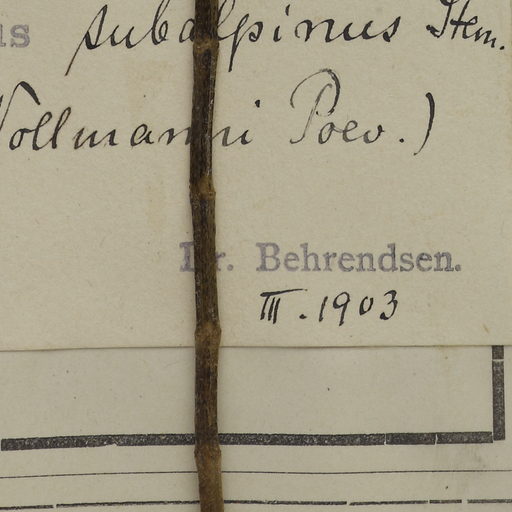 us subalpinus Stern.
Vollmanni Poev.)
Dr. Behrendsen.
III. 1903